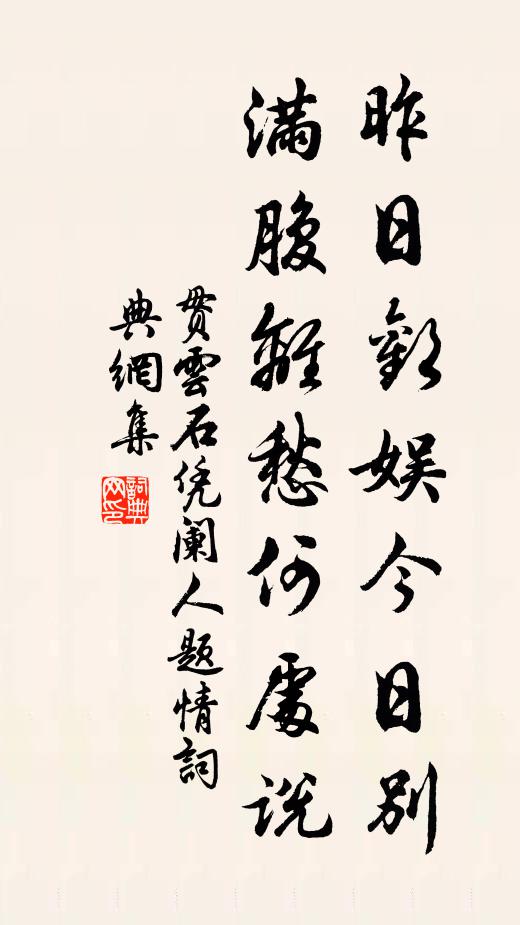 昨日歡娛今日別
滿腹離愁何處說
貫雲石凭阑人題情詞
典網集
詞典网印